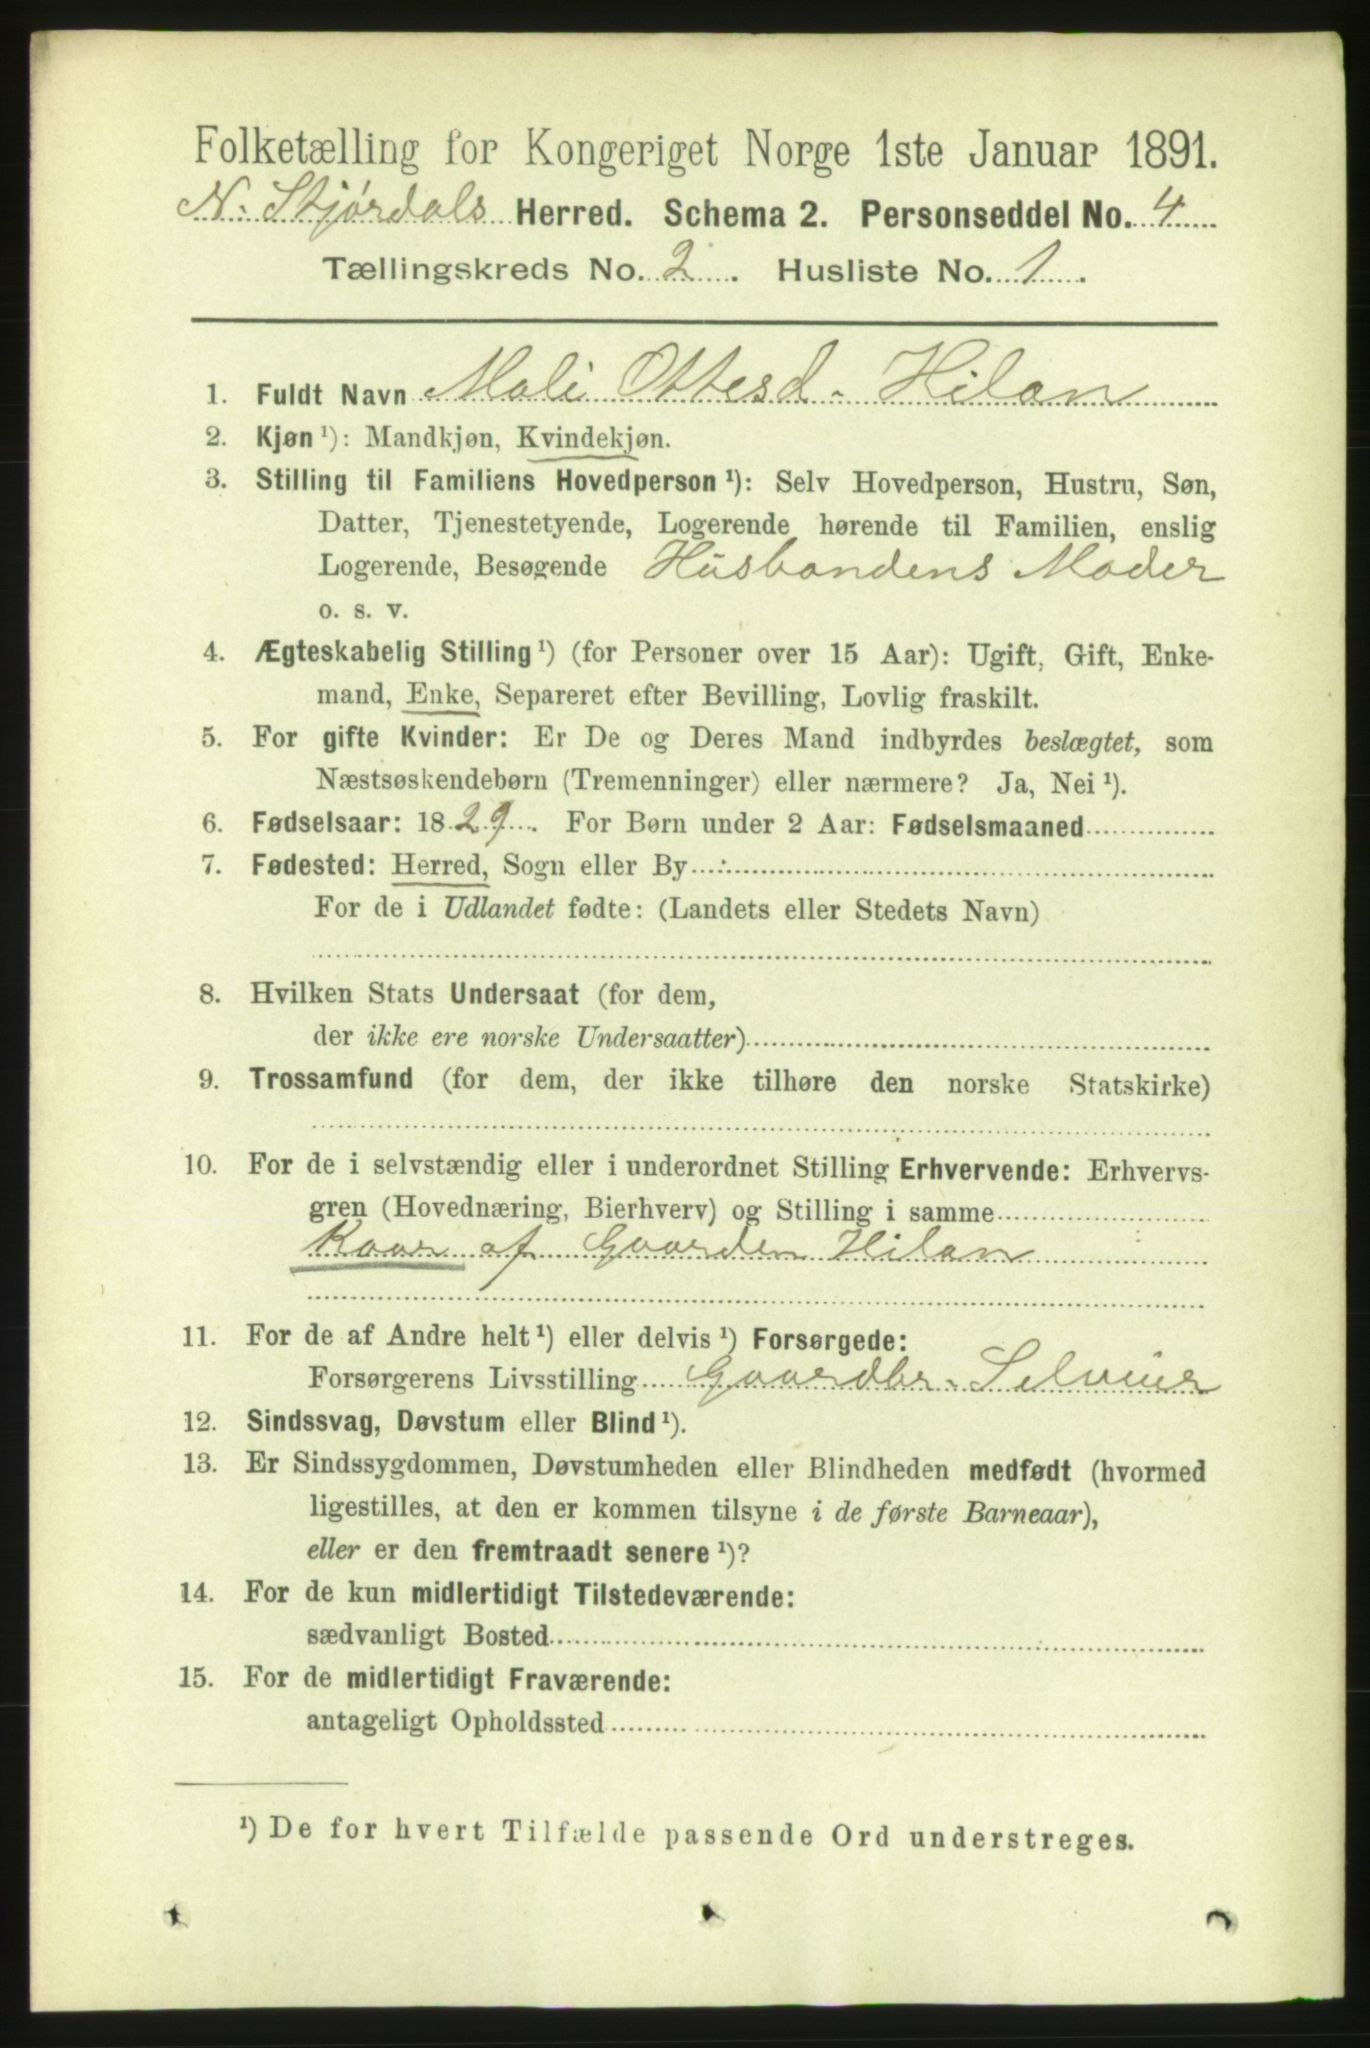 Folketælling for Kongeriget Norge 1ste Januar 1891.
N. Stjørdals Herred. Schema 2. Personseddel No. 4
Tællingskreds No. 2. Husliste No. 1.
1. Fuldt Navn Mali Ottesd. Hilan
2. Kjøn ¹): Mandkjøn, Kvindekjøn.
3. Stilling til Familiens Hovedperson ¹): Selv Hovedperson, Hustru, Søn,
Datter, Tjenestetyende, Logerende hørende til Familien, enslig
Logerende, Besøgende Husbondens Moder
o. s. v.
4. Ægteskabelig Stilling ¹) (for Personer over 15 Aar): Ugift, Gift, Enke-
mand, Enke, Separeret efter Bevilling, Lovlig fraskilt.
5. For gifte Kvinder: Er De og Deres Mand indbyrdes beslægtet, som
Næstsøskendebørn (Tremenninger) eller nærmere? Ja, Nei ¹).
6. Fødselsaar: 1829. For Børn under 2 Aar: Fødselsmaaned
7. Fødested: Herred, Sogn eller By
For de i Udlandet fødte: (Landets eller Stedets Navn)
8. Hvilken Stats Undersaat (for dem,
der ikke ere norske Undersaatter)
9. Trossamfund (for dem, der ikke tilhøre den norske Statskirke)
10. For de i selvstændig eller i underordnet Stilling Erhvervende: Erhvervs-
gren (Hovednæring, Bierhverv) og Stilling i samme
Kaar af Gaarden Hilan
11. For de af Andre helt ¹) eller delvis ¹) Forsørgede:
Forsørgerens Livsstilling Gaardbr. Selveier
12. Sindssvag, Døvstum eller Blind ¹).
13. Er Sindssygdommen, Døvstumheden eller Blindheden medfødt (hvormed
ligestilles, at den er kommen tilsyne i de første Barneaar),
eller er den fremtraadt senere ¹)?
14. For de kun midlertidigt Tilstedeværende:
sædvanligt Bosted
15. For de midlertidigt Fraværende:
antageligt Opholdssted
¹) De for hvert Tilfælde passende Ord understreges.